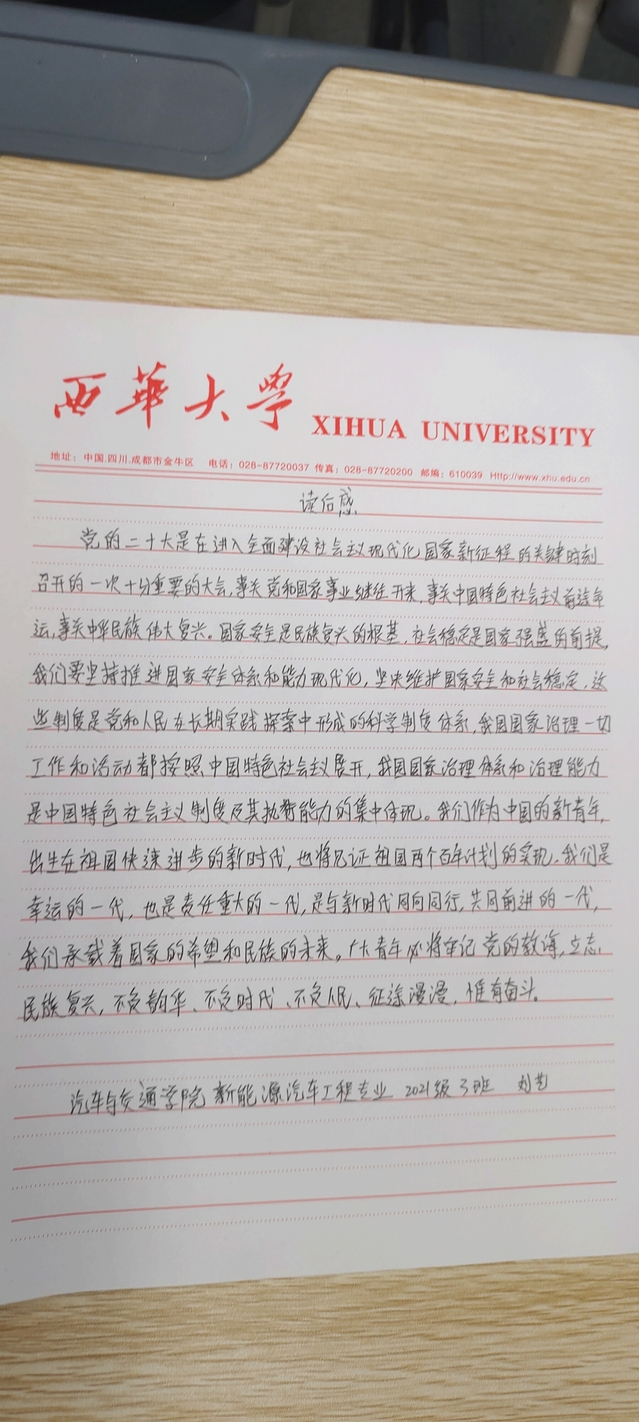 西華大學 XIHUA UNIVERSITY
地址：中国.四川.成都市金牛区 电话：028-87720037 传真：028-87720200 邮编：610039 Http://www.xhu.edu.cn
读后感
党的二十大是在进入全面建设社会主义现代化国家新征程的关键时刻
召开的一次十分重要的大会，事关党和国家事业继往开来，事关中国特色社会主义前途命
运，事关中华民族伟大复兴。国家安全是民族复兴的根基，社会稳定是国家强盛的前提，
我们要坚持推进国家安全体系和能力现代化，坚决维护国家安全和社会稳定，这
些制度是党和人民在长期实践探索中形成的科学制度体系，我国国家治理一切
工作和活动都按照中国特色社会主义展开，我国国家治理体系和治理能力
是中国特色社会主义制度及其执行能力的集中体现。我们作为中国的新青年，
出生在祖国快速进步的新时代，也将见证祖国两个百年计划的实现，我们是
幸运的一代，也是责任重大的一代，是与新时代同向同行，共同前进的一代，
我们承载着国家的希望和民族的未来。广大青年必将牢记党的教诲，立志
民族复兴，不负韶华、不负时代、不负人民、征途漫漫，惟有奋斗。
汽车与交通学院 新能源汽车工程专业 2021级3班 刘艺